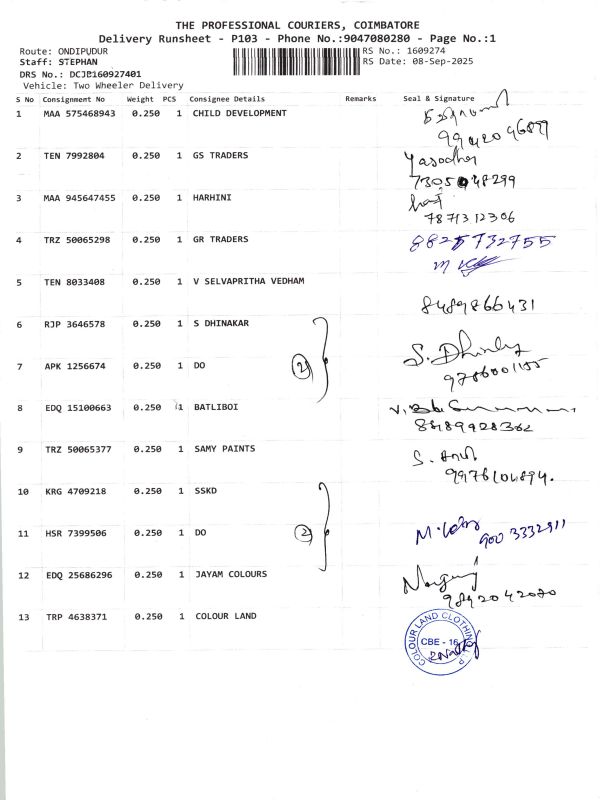 THE PROFESSIONAL COURIERS, COIMBATORE
Delivery Runsheet - P103 - Phone No.:9047080280 - Page No.:1
Route: ONDIPUDUR
RS No.: 1609274
Staff: STEPHAN
RS Date: 08-Sep-2025
DRS No.: DCJB160927401
Vehicle: Two Wheeler Delivery
S No Consignment No Weight PCS Consignee Details Remarks Seal & Signature
1 MAA 575468943 0.250 1 CHILD DEVELOPMENT
2 TEN 7992804 0.250 1 GS TRADERS Yasodha
3 MAA 945647455 0.250 1 HARHINI
7871312306
4 TRZ 50065298 0.250 1 GR TRADERS 8825732755
5 TEN 8033408 0.250 1 V SELVAPRITHA VEDHAM
8489866431
6 RJP 3646578 0.250 1 S DHINAKAR
7 APK 1256674 0.250 1 DO (2) S. Dhinakar
8 EDQ 15100663 0.250 1 BATLIBOI
8489928362
9 TRZ 50065377 0.250 1 SAMY PAINTS
10 KRG 4709218 0.250 1 SSKD
11 HSR 7399506 0.250 1 DO (2)
900 3332911
12 EDQ 25686296 0.250 1 JAYAM COLOURS
9842042080
13 TRP 4638371 0.250 1 COLOUR LAND
COLOUR LAND CLOTHING
CBE - 16